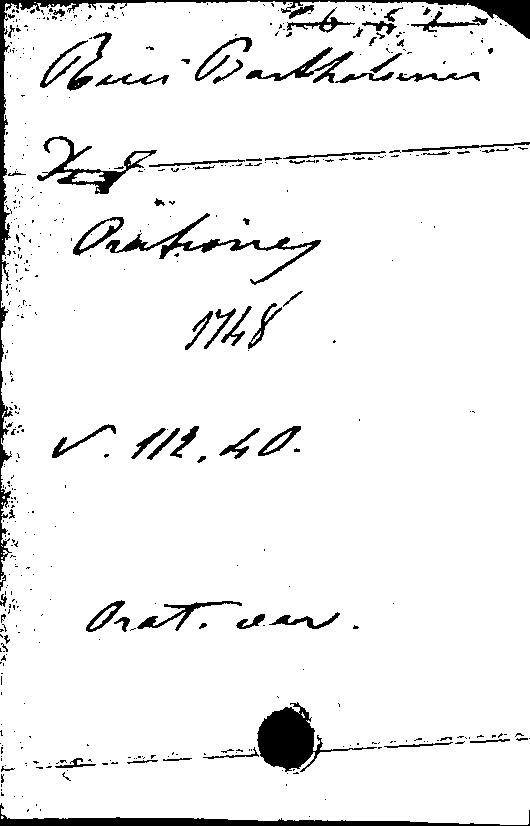 Ricci Bartholomei
Orationes
1748
V. 112, 40.
Orat. var.